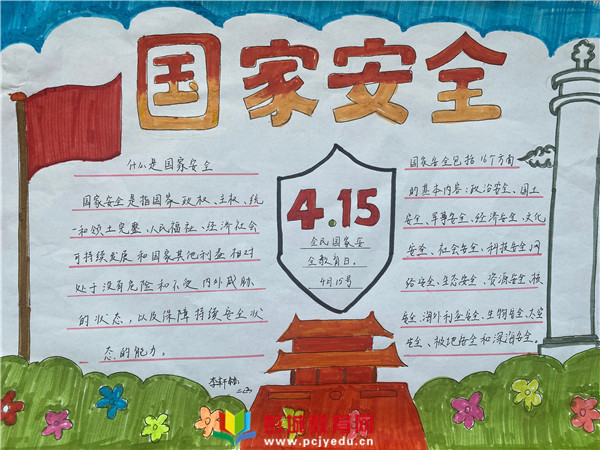 国家安全
什么是国家安全
国家安全是指国家政权、主权、统
一和领土完整、人民福祉、经济社会
可持续发展和国家其他利益相对
处于没有危险和不受内外威胁
的状态,以及保障持续安全状
态的能力。
4.15
全民国家安
全教育日。
4月15号
国家安全包括16个方面
的基本内容:政治安全、国土
安全、军事安全、经济安全、文化
安全、社会安全、科技安全、网
络安全、生态安全、资源安全、核
安全、海外利益安全、生物安全、太空
安全、极地安全和深海安全。
李轩
彭城教育网
www.pcjyedu.cn